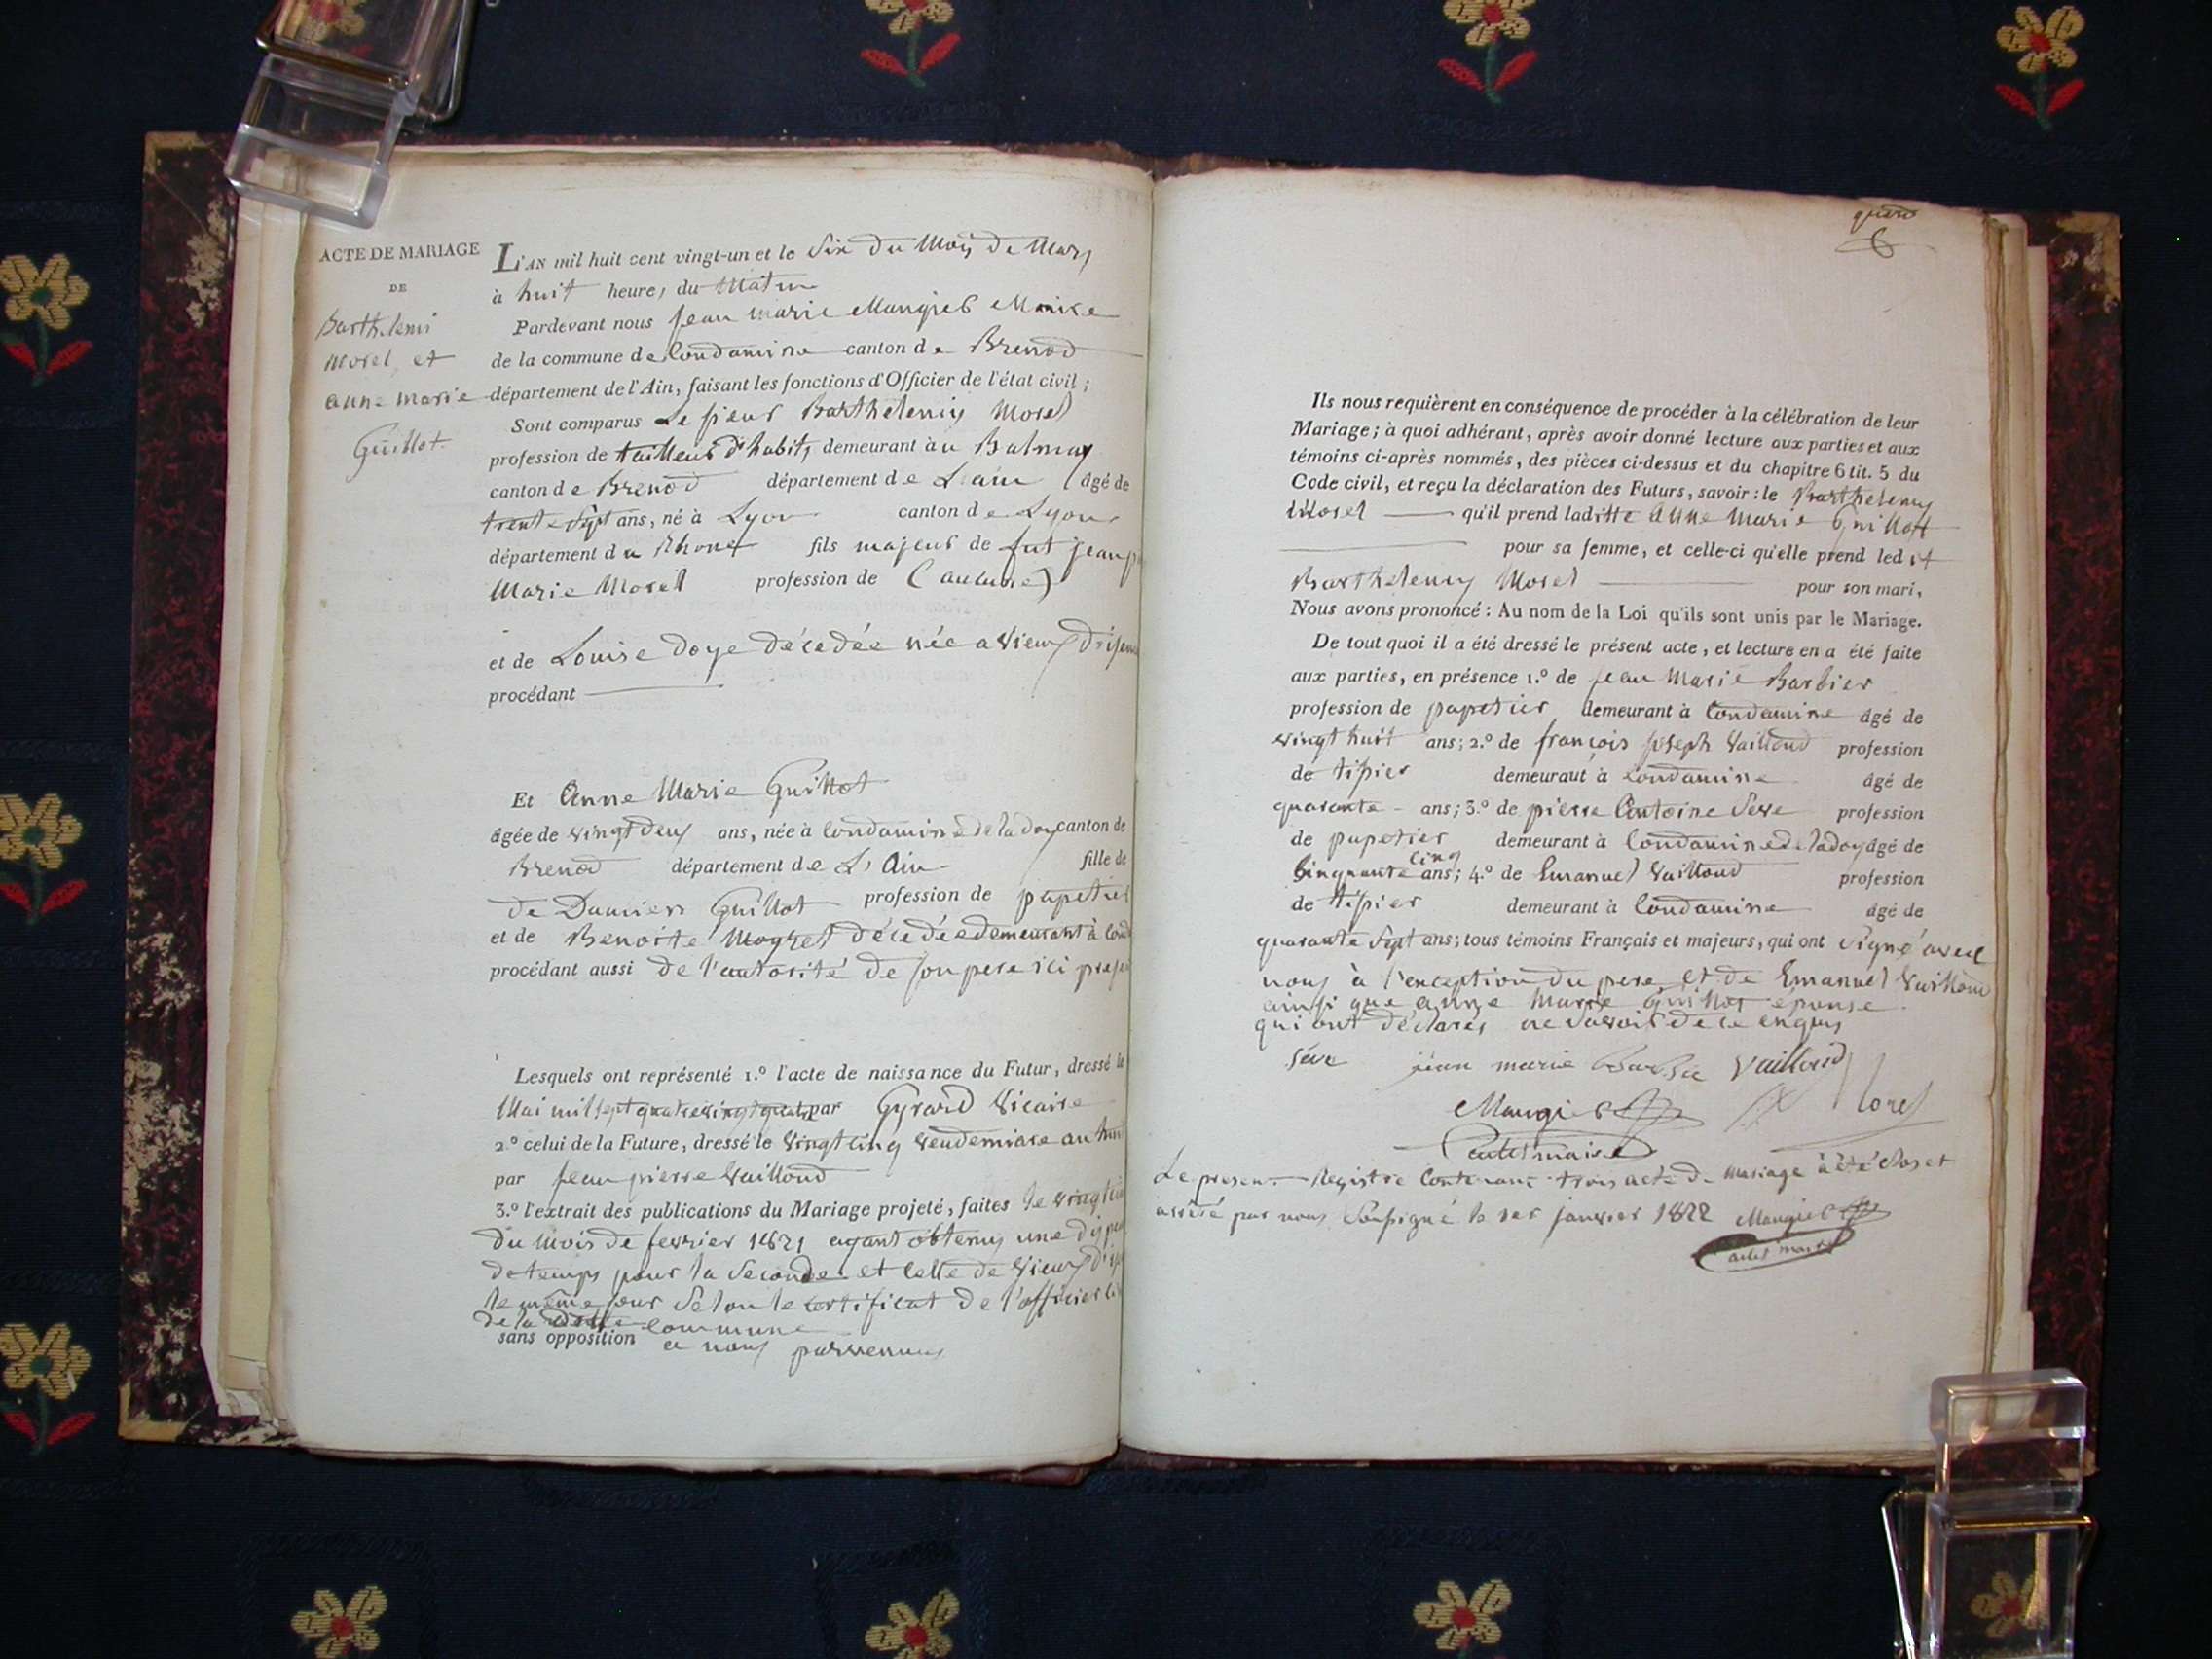 ACTE DE MARIAGE
DE
Barthelemi
Morel, et
anne marie
Guillot.
L'AN mil huit cent vingt-un et le Six du Mois de Mars
à huit heure, du Matin
Pardevant nous jean marie Maugier Maire
de la commune de Condamine canton de Brenod
département de l'Ain, faisant les fonctions d'Officier de l'état civil;
Sont comparus Le sieur Barthelemy Morel
profession de tailleur d'habits demeurant à u Balmay
canton de Brenod département de L'ain âgé de
trente Sept ans, né à Lyon canton de Lyon
département du Rhone fils majeur de fut jean
Marie Morel profession de
et de Louise Doye décédée née a Vieux
procédant
Et Anne Marie Guillot
âgée de vingt deux ans, née à Condamine de la doy canton de
Brenod département de L'Ain fille de
de Damien Guillot profession de papetier
et de Benoite décédée demeurant à
procédant aussi de l'autorité de son pere ici
Lesquels ont représenté 1.º l'acte de naissance du Futur, dressé le
Mai mil sept quatre vingt quatre par Gyrard Vicaire
2.º celui de la Future, dressé le vingt cinq vendemiare an
par Jean pierre Vailloud
3.º l'extrait des publications du Mariage projeté, faites le
du Mois de fevrier 1821 ayant obtenus une
de temps pour la Seconde et celle de Vieux
le même jour Selon le certificat de l'officier
de la commune
sans opposition a nous parvenues
6
Ils nous requièrent en conséquence de procéder à la célébration de leur
Mariage; à quoi adhérant, après avoir donné lecture aux parties et aux
témoins ci-après nommés, des pièces ci-dessus et du chapitre 6 tit. 5 du
Code civil, et reçu la déclaration des Futurs, savoir: le Barthelemy
Morel qu'il prend laditte anne Marie Guillot
pour sa femme, et celle-ci qu'elle prend ledit
Barthelemy Morel pour son mari,
Nous avons prononcé: Au nom de la Loi qu'ils sont unis par le Mariage.
De tout quoi il a été dressé le présent acte, et lecture en a été faite
aux parties, en présence 1.º de jean Marie Barbier
profession de papetier demeurant à Condamine âgé de
vingt huit ans; 2.º de françois joseph Vailloud profession
de tisier demeurant à Condamine âgé de
quarante ans; 3.º de pierre Antoine Seve profession
de papetier demeurant à Condamine de ladoy âgé de
Cinquante cinq ans; 4.º de Emanuel Vailloud profession
de tisier demeurant à Condamine âgé de
quarante Sept ans; tous témoins Français et majeurs, qui ont signé avec
nous à l'exception du pere et de Emanuel Vailloud
ainsi que anne Marie Guillot epouse
qui ont déclarés ne Savoir de ce enquis
Séve jéan marie Vailloud
Maugier Morel
Le present Registre Contenant trois acte de Mariage à été Clos et
arrêté par nous Soussigné le 1er janvier 1822 Maugier